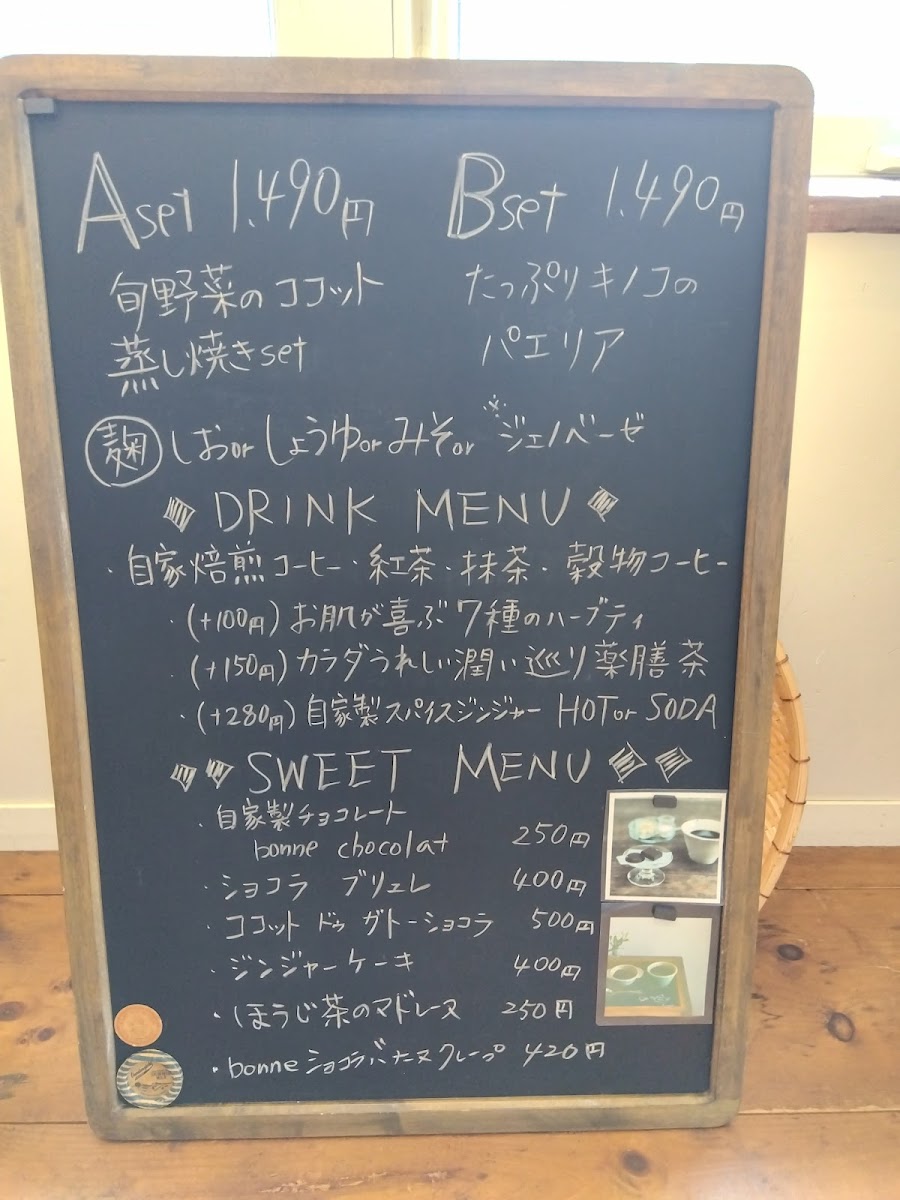 Aset 1.490円
Bset 1.490円
旬野菜のココット
蒸し焼きset
たっぷりキノコの
パエリア
麹 しおorしょうゆorみそor ※ジェノベーゼ
DRINK MENU
・自家焙煎コーヒー・紅茶・抹茶・穀物コーヒー
・(+100円)お肌が喜ぶ7種のハーブティ
・(+150円)カラダうれしい潤い巡り薬膳茶
・(+280円)自家製スパイスジンジャー HOTor SODA
SWEET MENU
・自家製チョコレート
bonne chocolat 250円
・ショコラ ブリュレ 400円
・ココット ドゥ ガトーショコラ 500円
・ジンジャーケーキ 400円
・ほうじ茶のマドレーヌ 250円
・bonneショコラバナヌクレープ 420円